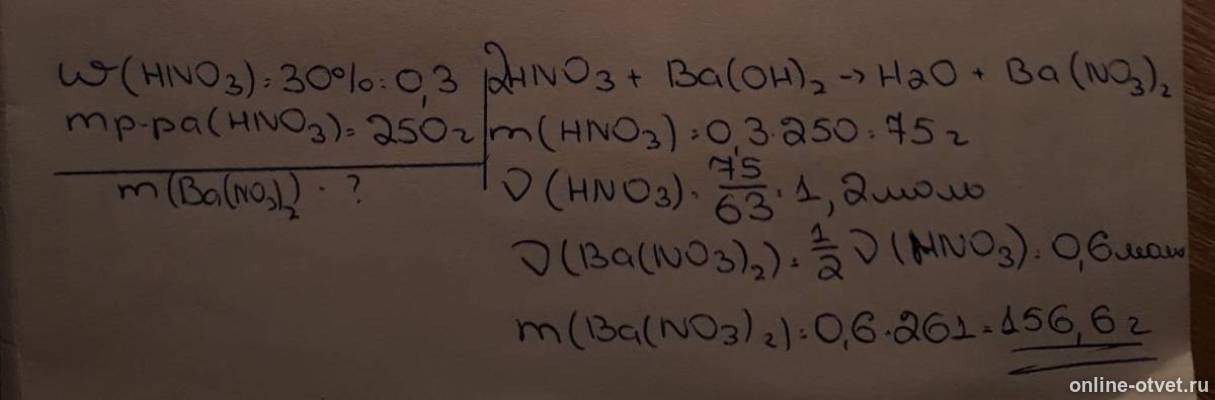 w(HNO3)=30%=0,3
mр-ра(HNO3)=250г
m(Ba(NO3)2)-?
2HNO3 + Ba(OH)2 → H2O + Ba(NO3)2
m(HNO3)=0,3·250=75г
ν(HNO3)=75/63=1,2моль
ν(Ba(NO3)2)=1/2 ν(HNO3)=0,6моль
m(Ba(NO3)2)=0,6·261=156,6г
online-otvet.ru